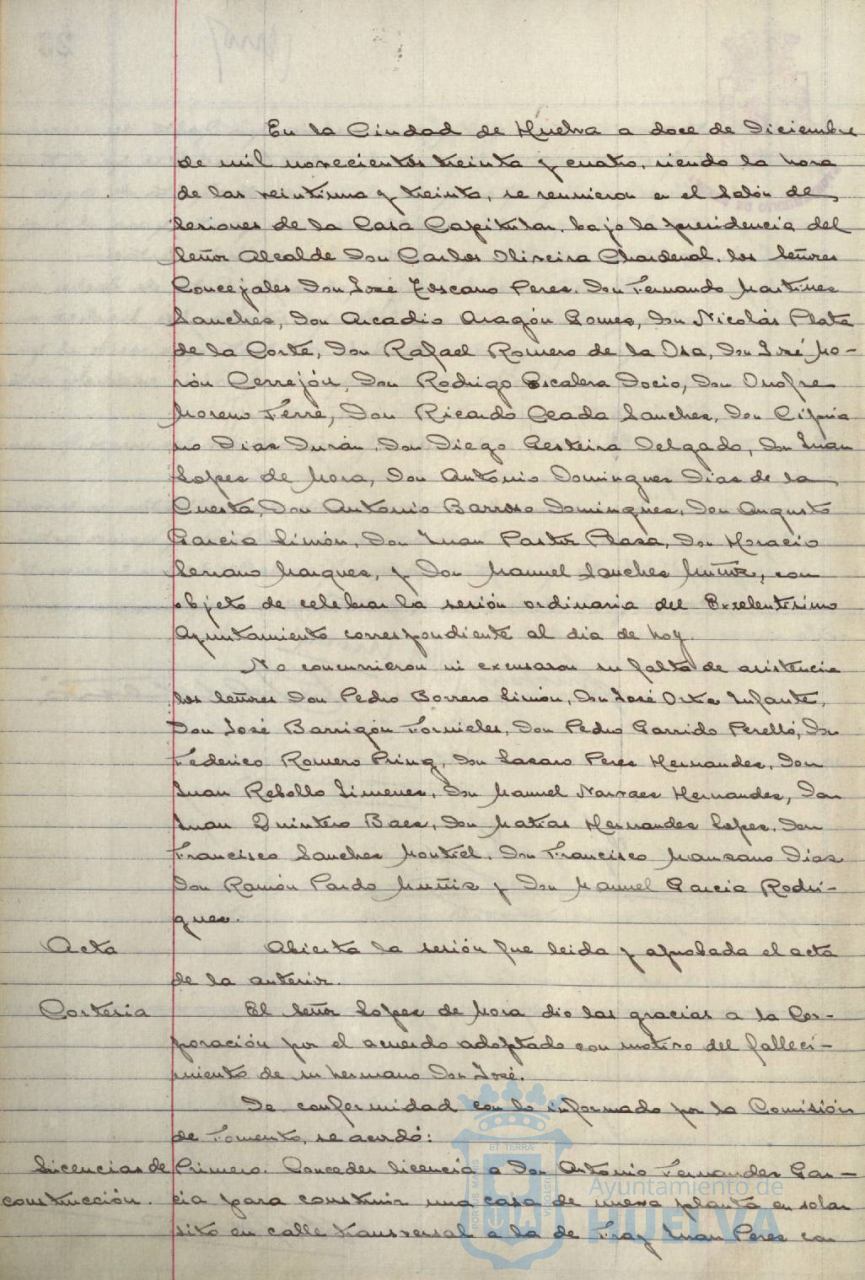 En la Ciudad de Huelva a doce de Diciembre
de mil novecientos treinta y cuatro, siendo la hora
de las veintiuna y treinta, se reunieron en el Salón de
Sesiones de la Casa Capitular, bajo la presidencia del
Señor Alcalde Don Carlos Oliveira Chardenal, los Señores
Concejales Don José Toscano Peres, Don Fernando Martines
Sanches, Don Arcadio Aragón Gomes, Don Nicolás Plata
de la Corte, Don Rafael Romero de la Osa, Don José Mo-
rón Cerrejón, Don Rodrigo Escalera Docio, Don Onofre
Moreno Ferré, Don Ricardo Ceada Sanches, Don Cipria
no Dias Durán, Don Diego Gesteira Delgado, Don Juan
Lopes de Mora, Don Antonio Domingues Dias de la
Cuesta, Don Antonio Barroso Domingues, Don Augusto
Garcia Simón, Don Juan Pastor Plasa, Don Horacio
Serrano Marques, y Don Manuel Sanches Muñiz, con
objeto de celebrar la sesión ordinaria del Excelentisimo
Ayuntamiento correspondiente al dia de hoy.
No concurrieron ni excusaron su falta de asistencia
los Señores Don Pedro Borrero Limón, Don José Orta Infante,
Don José Barrigón Fornieles, Don Pedro Garrido Perelló, Don
Federico Romero Pring, Don Lasaro Peres Hernandes, Don
Juan Rebollo Jimenes, Don Manuel Narvaes Hernandes, Don
Juan Quintero Baes, Don Matias Hernandes Lopes, Don
Francisco Sanches Montiel, Don Francisco Mansano Dias
Don Ramón Pardo Muñis y Don Manuel Garcia Rodri-
gues.
Acta Abierta la sesión fue leida y aprobada el acta
de la anterior.
Cortesia El Señor Lopes de Mora dio las gracias a la Cor-
poración por el acuerdo adoptado con motivo del falleci-
miento de su hermano Don José.
De conformidad con lo informado por la Comisión
de Fomento, se acordó:
Licencias de Primero. Conceder licencia a Don Antonio Fernandes Gar-
construcción. cia para construir una casa de nueva planta en solar
sito en calle transversal a la de Fray Juan Peres con
Ayuntamiento de
HUELVA